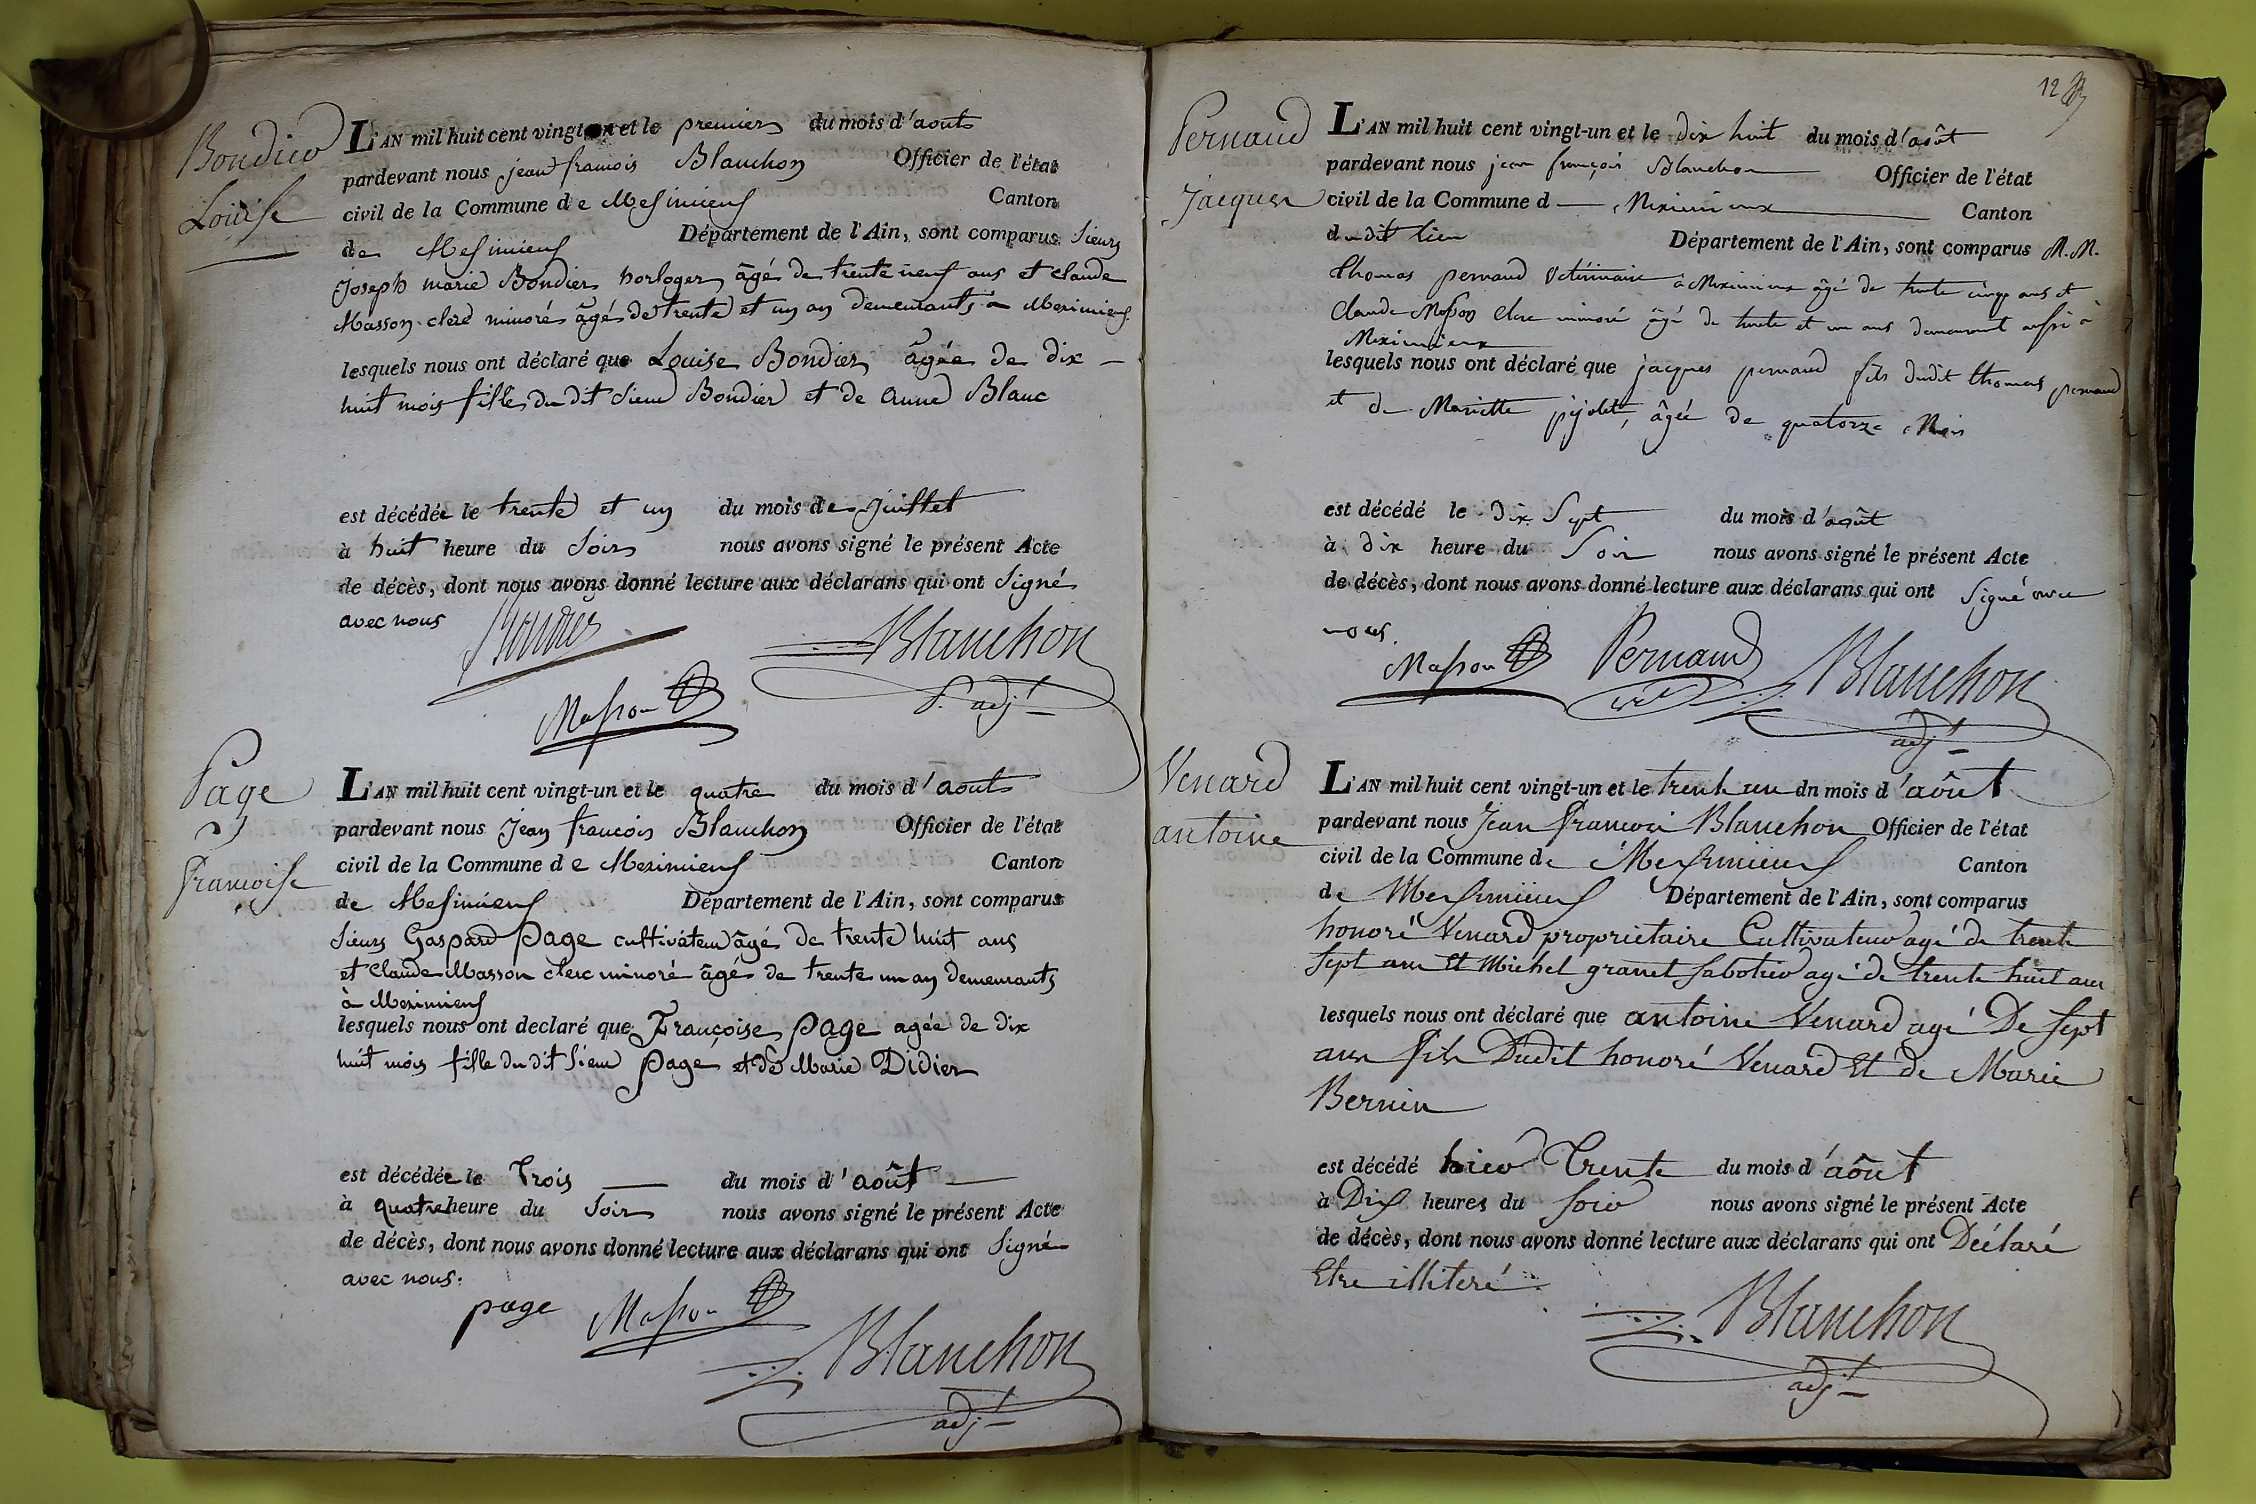 Bondier
Louise
L'AN mil huit cent vingt-un et le premier du mois d'aout
pardevant nous jean francois Blanchon Officier de l'état
civil de la Commune de Mesimieus Canton
de Mesimieus Département de l'Ain, sont comparus Sieurs
Joseph marie Bondier horloger âgé de trente neuf ans et claude
Masson clerc minoré âgés de trente et un an demeurants à Meximieus
lesquels nous ont déclaré que Louise Bondier âgée de dix
huit mois fille du dit Sieur Bondier et de anne Blanc
est décédée le trente et un du mois de Juillet
à huit heure du Soir nous avons signé le présent Acte
de décès, dont nous avons donné lecture aux déclarans qui ont Signé
avec nous
Bondier Blanchon
Masson adjt
Page
Francoise
L'AN mil huit cent vingt-un et le quatre du mois d'aout
pardevant nous Jean francois Blanchon Officier de l'état
civil de la Commune de Meximieus Canton
de Mesimieus Département de l'Ain, sont comparus
Sieurs Gaspard Page cultivateur âgé de trente huit ans
et Claude Masson clerc minoré âgés de trente un an demeurants
à Meximieus
lesquels nous ont declaré que Françoise Page agée de dix
huit mois fille du dit Sieur Page et de Marie Didier
est décédée le Trois du mois d'août
à quatre heure du Soir nous avons signé le présent Acte
de décès, dont nous avons donné lecture aux déclarans qui ont Signé
avec nous.
page Masson
Blanchon
adjt
12
Pernaud
Jacques
L'AN mil huit cent vingt-un et le dix huit du mois d'août
pardevant nous jean françois Blanchon Officier de l'état
civil de la Commune d Meximieux Canton
dudit lieu Département de l'Ain, sont comparus M.M.
thomas pernaud Vétérinaire à Meximieux âgé de trente cinq ans et
Claude Masson Clerc minoré âgé de trente et un ans demeurant aussi à
Meximieux
lesquels nous ont déclaré que jacques pernaud fils dudit thomas pernaud
et de Mariette pijolet, âgée de quatorze Mois
est décédé le Dix Sept du mois d'août
à dix heure du Soir nous avons signé le présent Acte
de décès, dont nous avons donné lecture aux déclarans qui ont Signé avec
nous.
Masson Pernaud Blanchon
adjt
Venard
antoine
L'AN mil huit cent vingt-un et le trent un dn mois d'aôut
pardevant nous Jean Francois Blanchon Officier de l'état
civil de la Commune de Mesimieus Canton
de Mesimieus Département de l'Ain, sont comparus
honoré Venard proprietaire Cultivateur agé de trente
Sept ans Et Michel granet Sabotier agé de trente huit ans
lesquels nous ont déclaré que antoine Venard agé De Sept
ans fils Dudit honoré Venard Et de Marie
Bernin
est décédé hier Trente du mois d'aôut
à Dix heures du Soir nous avons signé le présent Acte
de décès, dont nous avons donné lecture aux déclarans qui ont Déclaré
Etre illiteré
Blanchon
adjt